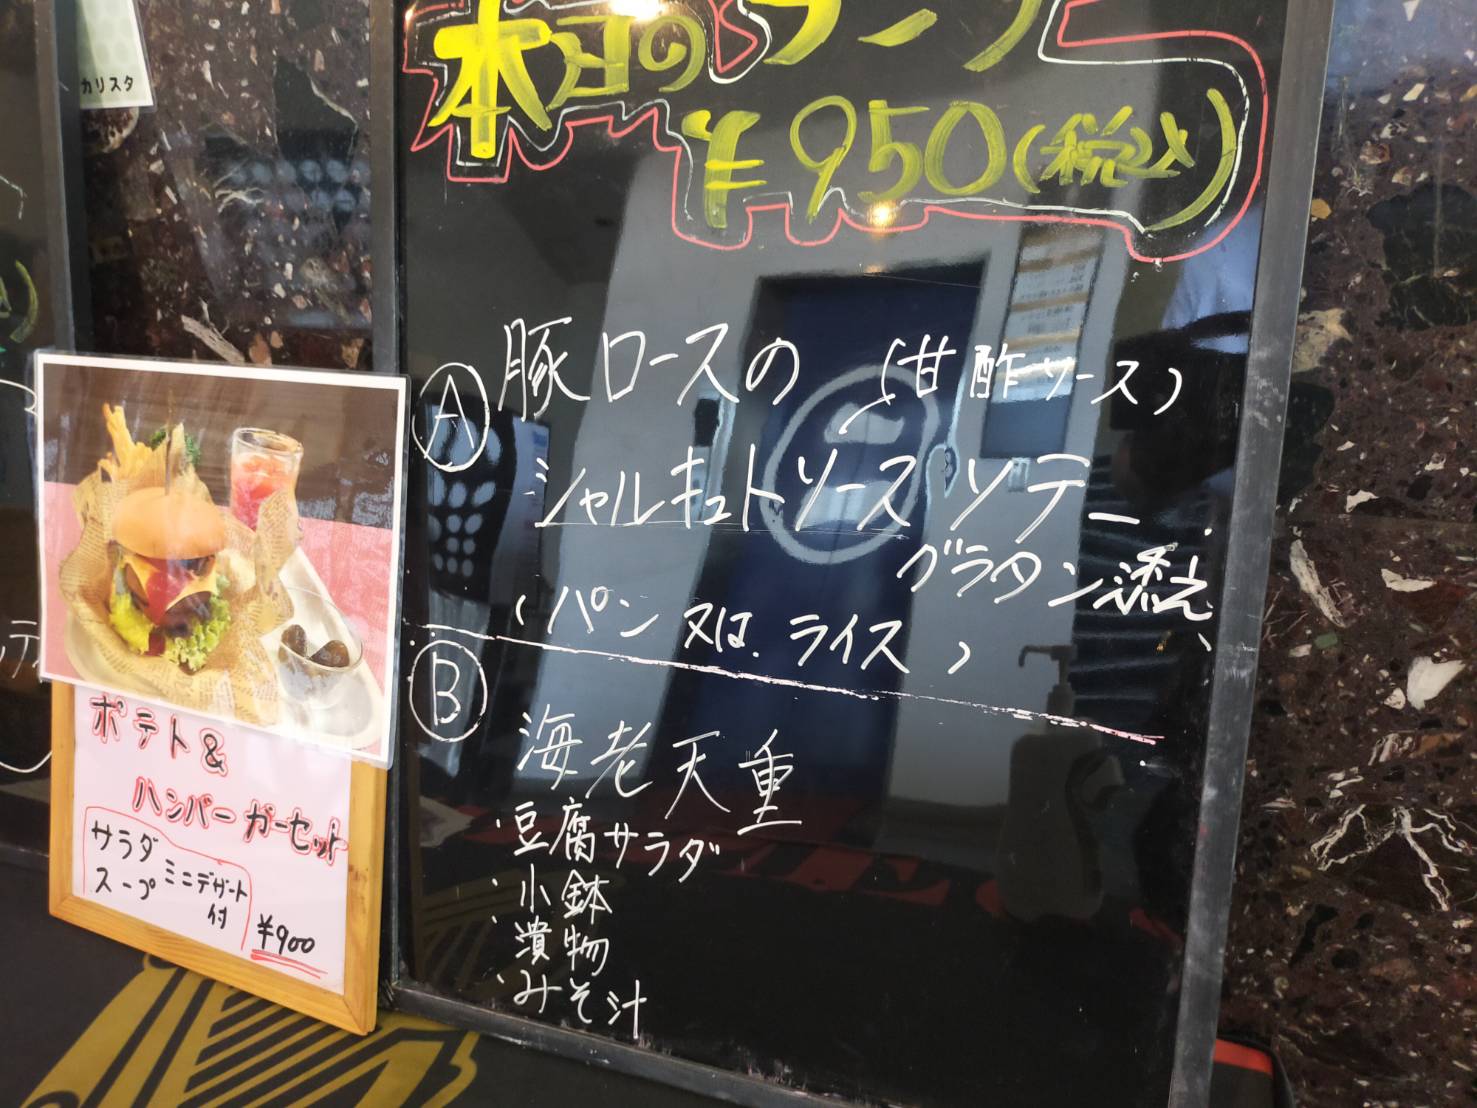 カリスタ
本日のランチ
¥950(税込)
Ⓐ 豚ロースの (甘酢ソース)
シャルキュトソース ソテー
グラタン添え
(パン 又は ライス)
Ⓑ 海老天重
・豆腐サラダ
・小鉢
・漬物
・みそ汁
ポテト&
ハンバーガーセット
サラダ
スープ
ミニデザート
付
¥900